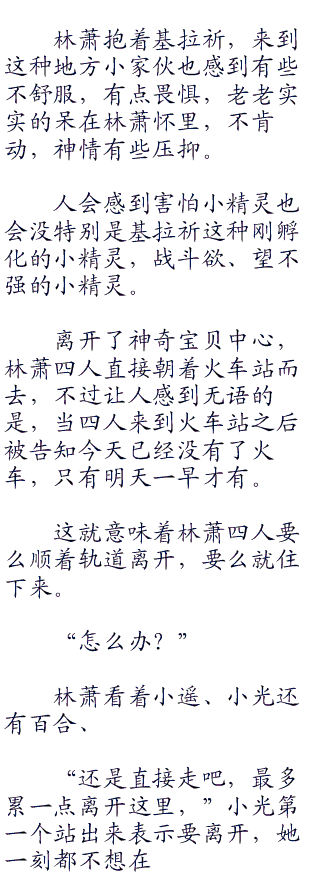 林萧抱着基拉祈，来到
这种地方小家伙也感到有些
不舒服，有点畏惧，老老实
实的呆在林萧怀里，不肯
动，神情有些压抑。
人会感到害怕小精灵也
会没特别是基拉祈这种刚孵
化的小精灵，战斗欲、望不
强的小精灵。
离开了神奇宝贝中心，
林萧四人直接朝着火车站而
去，不过让人感到无语的
是，当四人来到火车站之后
被告知今天已经没有了火
车，只有明天一早才有。
这就意味着林萧四人要
么顺着轨道离开，要么就住
下来。
“怎么办？”
林萧看着小遥、小光还
有百合、
“还是直接走吧，最多
累一点离开这里，”小光第
一个站出来表示要离开，她
一刻都不想在